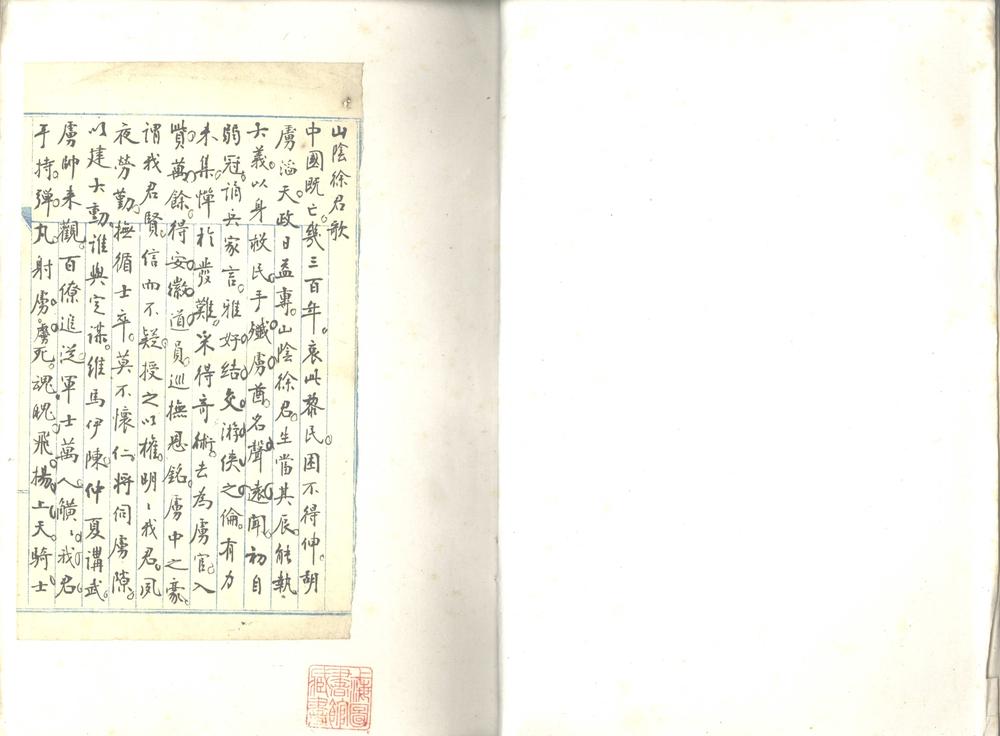 山陰徐君歌
中國既亡。幾三百年。哀此黎民。困不得伸。胡
虜滔天。政日益專。山陰徐君。生當其辰。能執
大義。以身救民。手殲虜酋。名聲遠聞。初自
弱冠。誦兵家言。雅好結交。游俠之倫。有力
未集。憚於發難。采得奇術。去為虜官。入
貲萬餘。得安徽道員。巡撫恩銘。虜中之豪。
謂我君賢。信而不疑。授之以權。明〻我君。夙
夜勞勤。撫循士卒。莫不懷仁。將伺虜隙。
以建大勳。誰與定謀。維馬伊陳。仲夏講武
虜帥來觀。百僚追從。軍士萬人。觵〻我君。
手持彈丸。射虜。虜死。魂魄飛揚。上天。騎士
上海圖書館藏書